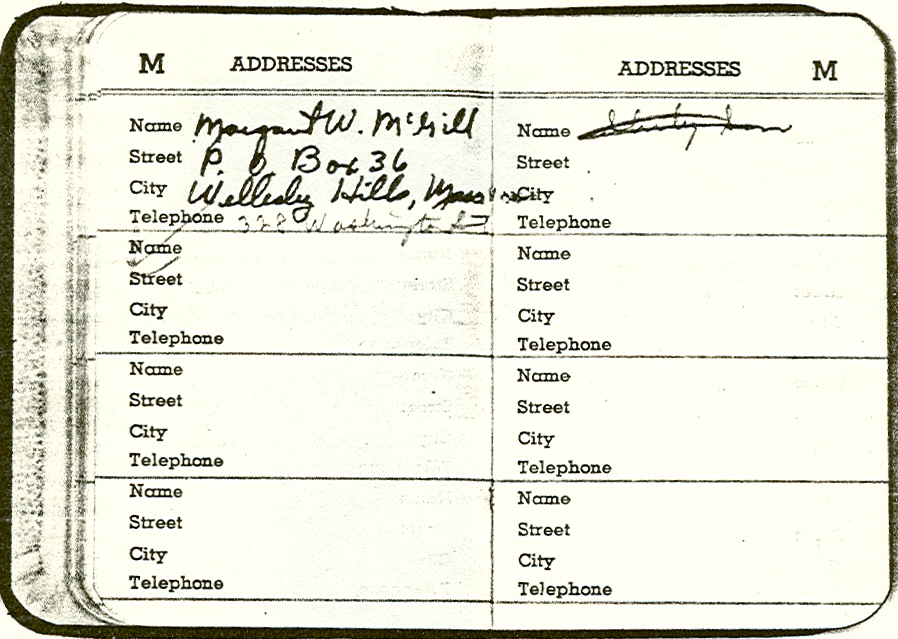 M ADDRESSES
Name Margaret W. McGill
Street P. O. Box 36
City Wellesley Hills, Mass
Telephone 328 Washington St
Name
Street
City
Telephone
Name
Street
City
Telephone
Name
Street
City
Telephone
ADDRESSES M
Name
Street
City
Telephone
Name
Street
City
Telephone
Name
Street
City
Telephone
Name
Street
City
Telephone